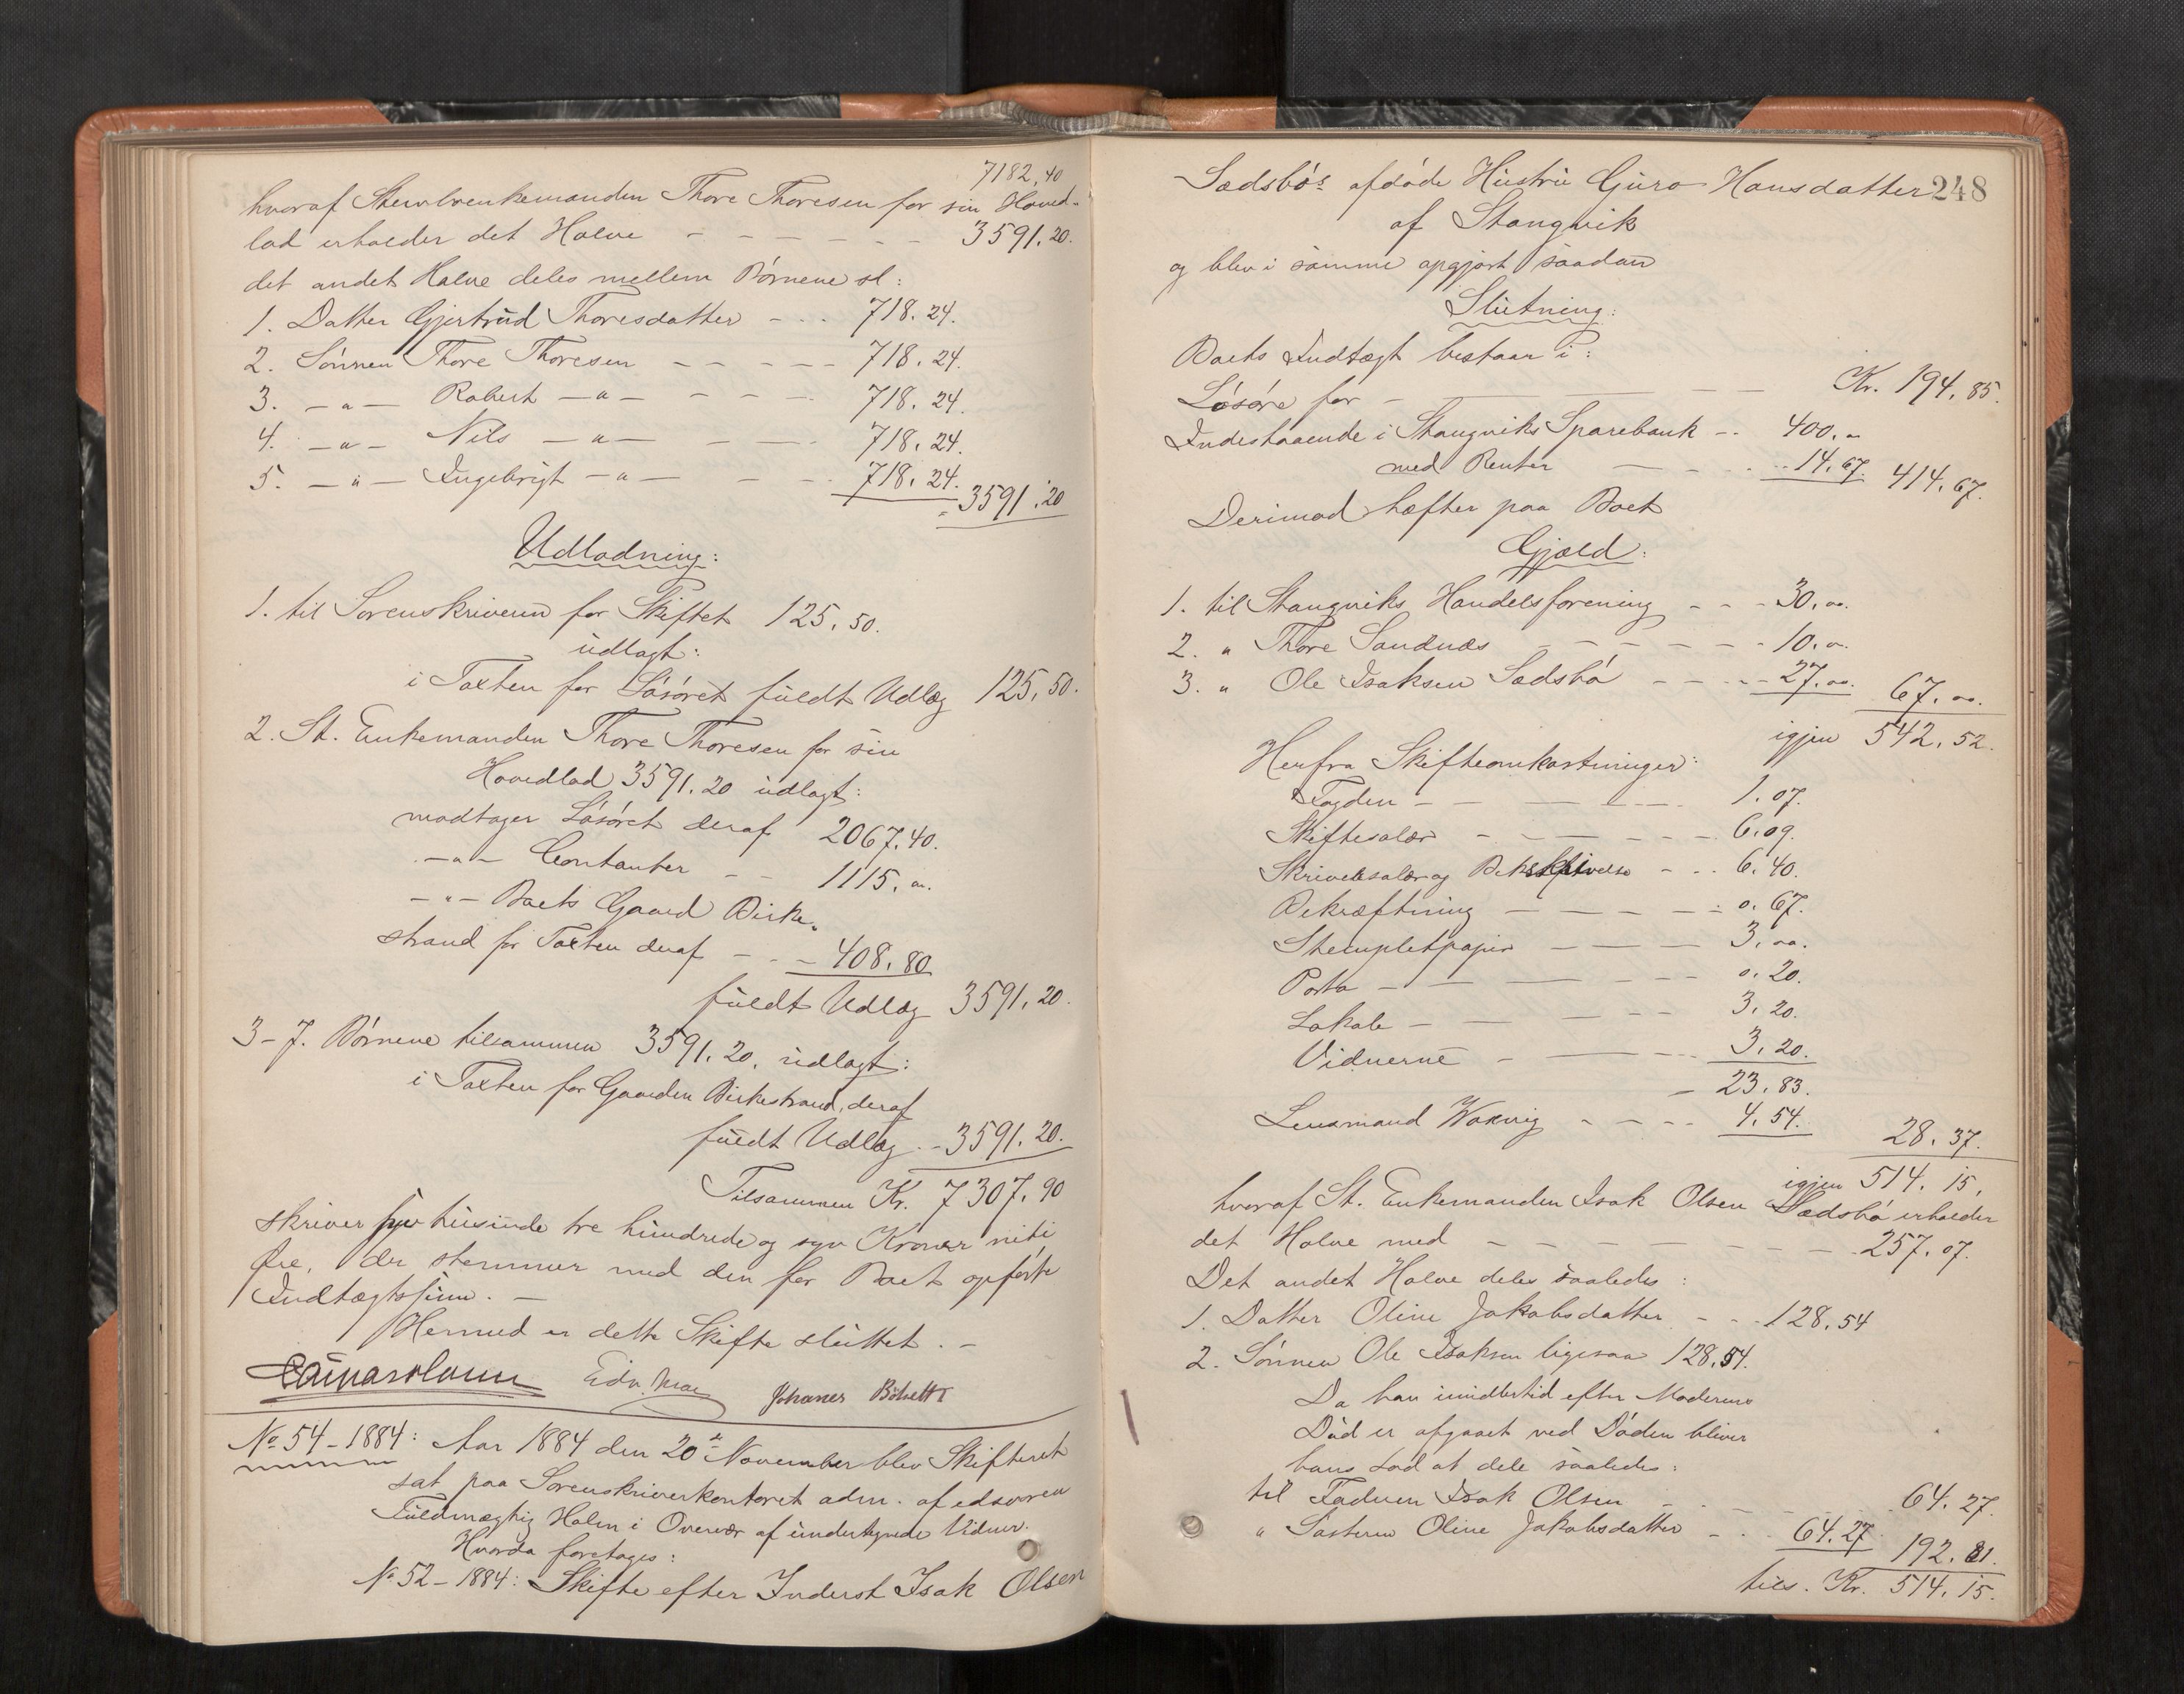 7182,40
hvoraf Stervboenkemanden Thore Thoresen for sin Hoved-
lod erholder det Halve - - - - - - 3591.20.
det andet Halve deles mellem Børnene sl:
1. Datter Gjertrud Thoresdatter - - - 718.24.
2. Sønnen Thore Thoresen - - - - - 718.24.
3. -"- Robert -"- - - - 718.24.
4. -"- Nils -"- - - - 718.24.
5. -"- Ingebrigt -"- - - 718.24. 3591.20
Udlodning:
1. til Sorenskriveren for Skiftet 125,50.
udlagt:
i Taxten for Løsøret fuldt Udlæg 125,50.
2. St. Enkemanden Thore Thoresen for sin
Hovedlod 3591.20 udlagt:
modtager Løsøret deraf 2067.40.
-"- Contanter - - 1115."
-"- Boets Gaard Birke-
strand for Taxten deraf - - - 408.80
fuldt Udlæg 3591.20.
3-7. Børnene tilsammen 3591.20. udlagt:
i Taxten for Gaarden Birkestrand, deraf
fuldt Udlæg - 3591.20.
Tilsammen Kr. 7307.90
skriver syv tusinde tre hundrede og syv Kroner niti
Øre, der stemmer med den for Boet opførte
Indtægtssum. -
Hermed er dette Skifte sluttet. -
Edv. Moe Johannes
No 54-1884: Aar 1884 den 20de November blev Skifteret
sat paa Sorenskriverkontoret adm. af edsvoren
Fuldmægtig Holm i Overvær af undertegnede Vidner.
Hvorda foretages:
No 52-1884: Skifte efter Inderst Isak Olsen
Sædsbø's afdøde Hustru Guro Hansdatter 248
af Stangvik
og blev i samme opgjort saadan
Slutning:
Boets Indtægt bestaar i:
Løsøre for - - - Kr. 194,85.
Indestaaende i Stangviks Sparebank -- 400,"
med Renter - - - 14.67. 414.67.
Derimod hæfter paa Boet
Gjæld:
1. til Stangviks Handelsforening - - - 30,"
2. " Thore Sandnæs - - - - - 10."
3. " Ole Isaksen Sædsbø - - - - 27," 67,"
igjen 542.52.
Herfra Skifteomkostninger:
Fogden - - - - 1.07.
Skiftesalær - - - - 6.09.
Skriversalær og Beskrivelse - - - 6.40.
Bekræftning - - - - 0.67.
Stempletpapir - - - 3,"
Porto - - - - 0.20.
Lokale - - - - 3.20.
Vidnerne - - - 3.20.
- 23.83.
Lensmand Wakvig - - - - 4.54. 28.37.
igjen 514.15.
hvoraf St. Enkemanden Isak Olsen Sædsbø erholder
det Halve med - - - - - - - 257.07.
Det andet Halve deles saaledes:
1. Datter Oline Jakobsdatter - - - 128.54
2. Sønnen Ole Isaksen ligesaa 128,54.
Da han imidlertid efter Moderens
Død er afgaaet ved Døden bliver
hans Lod at dele saaledes:
til Faderen Isak Olsen - - - 64.27.
" Søsteren Oline Jakobsdatter - - 64.27 192.81.
tils. Kr. 514.15.